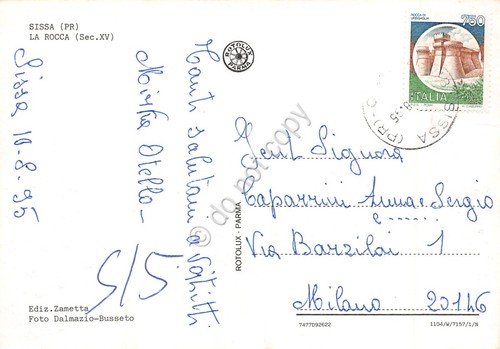 SISSA (PR)
LA ROCCA (Sec.XV)
ROTOLUX
PARMA
ROCCA DI
URBISAGLIA
750
ITALIA
SISSA (PR)
Tanti saluti
Mirka Otello
Sissa 10-8-95
5/5
do not copy
ROTOLUX - PARMA
Gent Signora
Caparrini Anna e Sergio
Via Barzilai 1
Milano 20146
Ediz.Zametta
Foto Dalmazio-Busseto
7477D92622
1104/W/7157/I/N